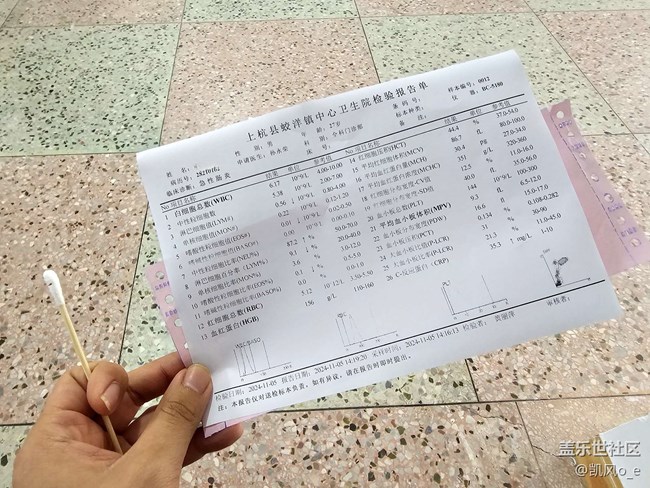 上杭县蛟洋镇中心卫生院检验报告单
样本编号: 0012
姓 名:
性 别: 男
年 龄: 27岁
条 码 号:
仪 器: BC-5180
病历号: 2820H6z
申请医生: 孙永荣
科 别: 中科门诊部
标本种类:
临床诊断: 急性肠炎
备 注:
No 项目名称 结果 单位 参考值 No 项目名称 结果 单位 参考值
1 白细胞总数(WBC) 6.17 10^9/L 4.00-10.00
2 中性粒细胞数 5.38 10^9/L 2.00-7.00
3 淋巴细胞值(LYM#) 0.56 ↓ 10^9/L 0.80-4.00
4 单核细胞值(MON#) 0.22 10^9/L 0.12-1.20
5 嗜酸性粒细胞值(EOS#) 0.01 ↓ 10^9/L 0.02-0.50
6 嗜碱性粒细胞值(BASO#) 0.00 10^9/L 0.00-0.10
7 中性粒细胞比率(NEU%) 87.2 ↑ % 50.0-70.0
8 淋巴细胞百分率(LYM%) 9.1 ↓ % 20.0-40.0
9 单核细胞比率(MON%) 3.6 % 3.0-12.0
10 嗜酸性粒细胞比率(EOS%) 0.1 ↓ % 0.5-5.0
11 嗜碱性粒细胞比率(BASO%) 0.0 % 0.0-1.0
12 红细胞总数(RBC) 5.12 10^12/L 3.50-5.50
13 血红蛋白(HGB) 156 g/L 110-160
14 红细胞压积(HCT) 44.4 % 37.0-54.0
15 平均红细胞体积(MCV) 86.7 fL 80.0-100.0
16 平均血红蛋白量(MCH) 30.4 Pg 27.0-34.0
17 平均血红蛋白浓度(MCHC) 351 g/L 320-360
18 红细胞分布宽度-CV值 12.5 % 11.0-16.0
19 红细胞分布宽度-SD值 fL 35.0-56.0
20 血小板总数(PLT) 144 10^9/L 100-300
21 平均血小板体积(MPV) 9.3 fL 6.5-12.0
22 血小板分布宽度(PDW) 16.6 15.0-17.0
23 血小板压积(PCT) 0.134 % 0.108-0.282
24 大血小板比值(P-LCR) 31 30-90
25 大血小板比率(P-LCR) 21.5 % 11.0-45.0
26 C-反应蛋白(CRP) 35.3 ↑ mg/L 1-10
检验日期: 2024-11-05 报告日期: 2024-11-05 14:19:20 采样时间: 2024-11-05 14:16:13 检验者: 黄丽萍 审核者:
注: 本报告仅对送检标本负责, 如有异议, 请在报告时即时提出。
盖乐世社区
@凯风o_e